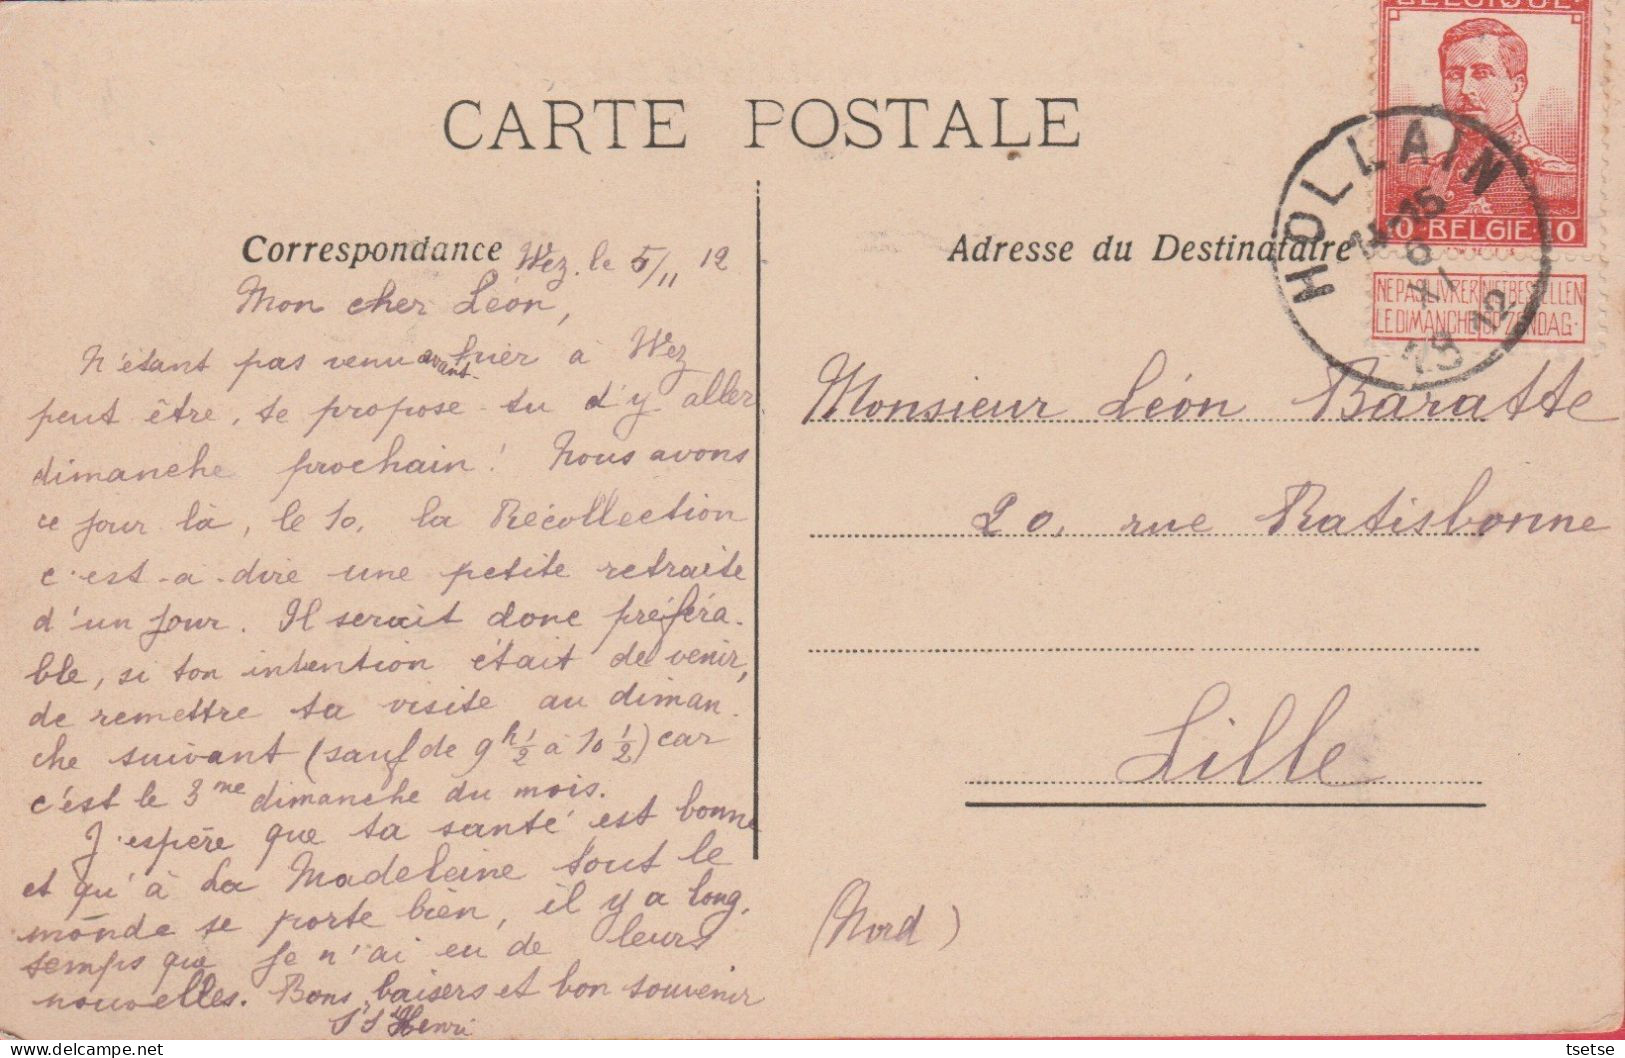 BELGIQUE
10 BELGIE 10
NE PAS LIVRER NIET BESTELLEN
LE DIMANCHE OP ZONDAG
HOLLAIN
6 XI
19 12
CARTE POSTALE
Correspondance
Adresse du Destinataire
Wez, le 5/11 12
Mon cher Léon,
N'étant pas venu avant-hier à Wez
peut être, te propose-tu d'y aller
dimanche prochain! Nous avons
ce jour là, le 10, la Récollection
c'est-à-dire une petite retraite
d'un jour. Il serait donc préféra-
ble, si ton intention était de venir,
de remettre ta visite au diman-
che suivant (sauf de 9h 1/2 à 10 1/2) car
c'est le 3me dimanche du mois.
J'espère que ta santé est bonne
et qu'à La Madeleine tout le
monde se porte bien, il y a long-
temps que je n'ai eu de leurs
nouvelles. Bons baisers et bon souvenir
Henri
Monsieur Léon Baratte
20, rue Ratisbonne
Lille
(Nord)
tsetse